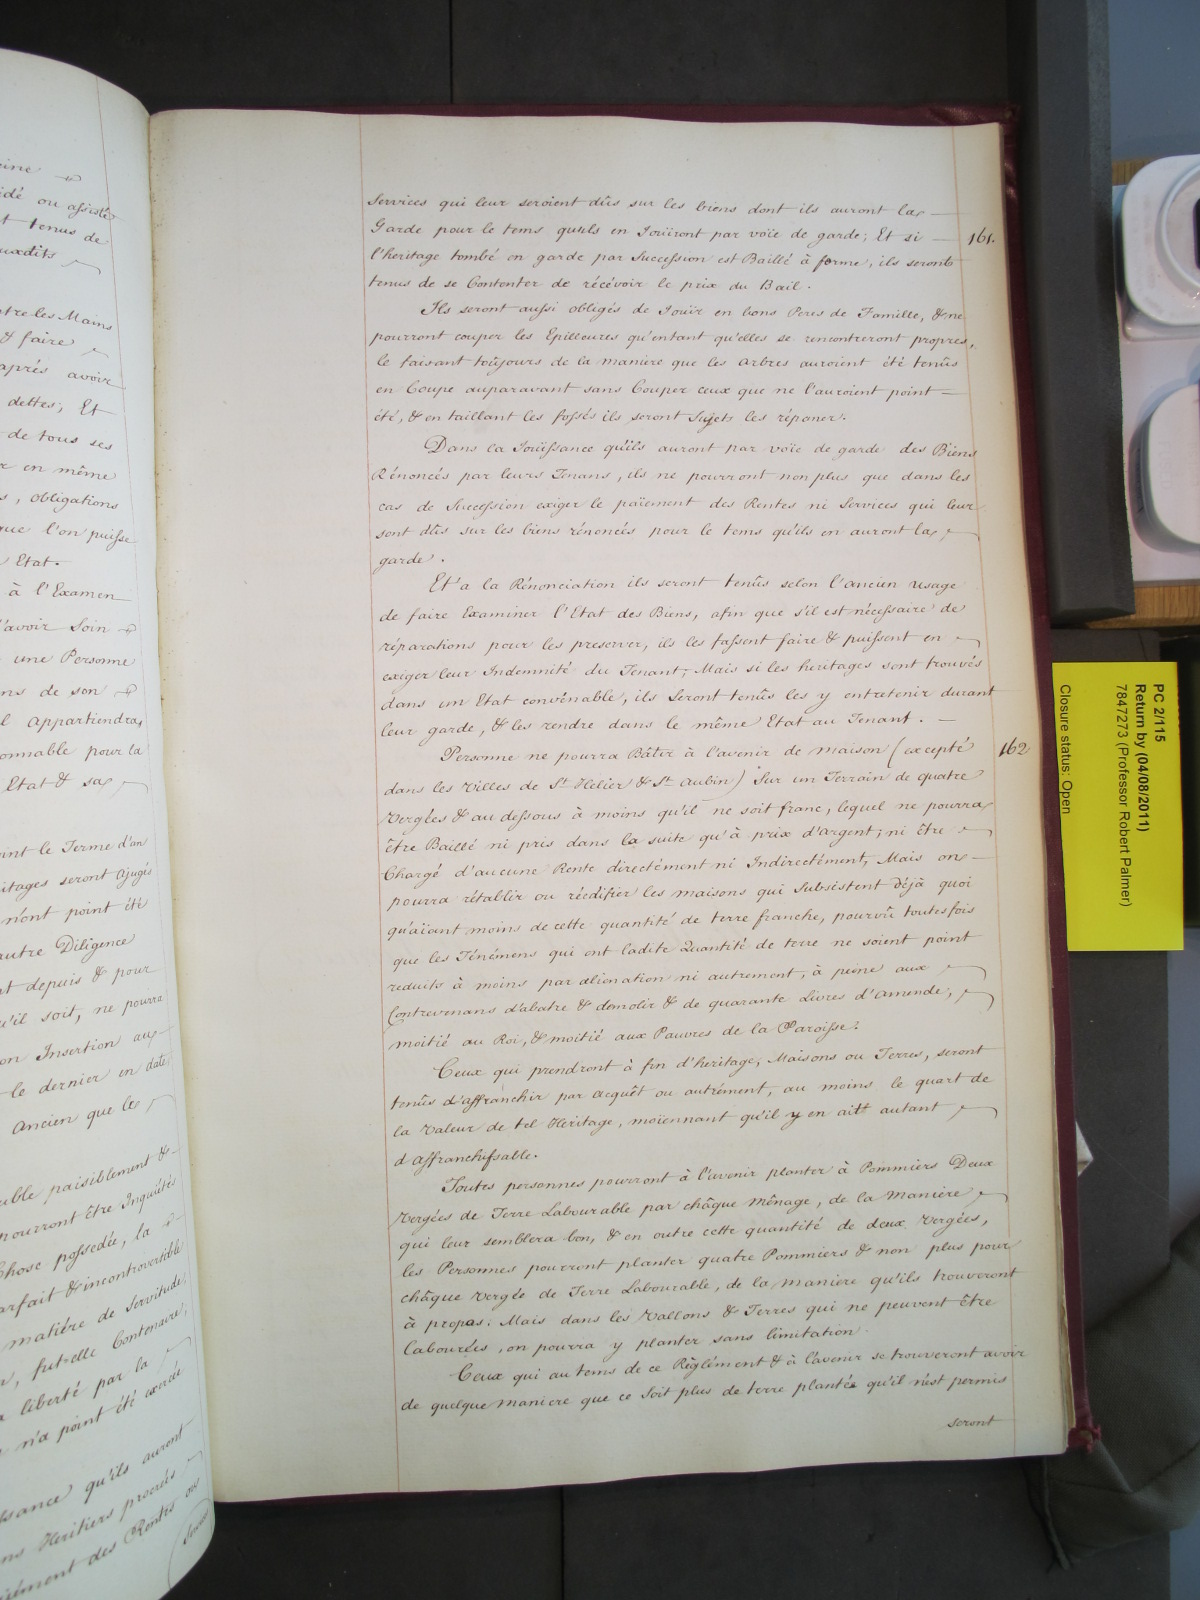 eine
idé ou assisté
t tenus de
uxdits
tre les Mains
& faire
aprés avoir
dettes; Et
de tous ses
r en même
s, obligations
que l'on puisse
Etat.
à l'Examen
'avoir Soin
une Personne
ns de son
l appartiendra
onnable pour la
Etat & sa
int le Terme d'an
itages seront ajugés
n'ont point été
autre Diligence
nt depuis & pour
u'il soit, ne pourra
on Insertion au
le dernier en date
ancien que le
uble paisiblement &
pourront être Inquiétés
Chose possedée, la
arfait & incontrovertible
matiére de Servitude
fut-elle Contenaire,
liberté par la
n'a point été cordé
ssance qu'ils auront
ns Heritiers procréés
iément des Rentes ou
Services
Services qui leur seroient dûs sur les biens dont ils auront la
Garde pour le tems qu'ils en Joüiront par voïe de garde; Et si
161.
l'heritage tombé en garde par Succession est Baillé à ferme, ils seront
tenus de se Contenter de récévoir le prix du Bail.
Ils seront aussi obligés de Joüir en bons Peres de Famille, & ne
pourront couper les Epilleures qu'entant qu'elles se rencontreront propres,
le faisant toûjours de la maniere que les arbres auroient été tenûs
en Coupe auparavant sans Couper ceux que ne l'auroient point
été, & en taillant les fossés ils seront Sujets les réparer.
Dans la Joüissance qu'ils auront par voïe de garde des Biens
Rénoncés par leurs Tenans, ils ne pourront non plus que dans les
cas de Succession exiger le païement des Rentes ni Services qui leur
sont dûs sur les biens rénoncés pour le tems qu'ils en auront la
garde.
Et a la Rénonciation ils seront tenûs selon l'ancien usage
de faire Examiner l'Etat des Biens, afin que s'il est nécessaire de
réparations pour les preserver, ils les fassent faire & puissent en
exiger leur Indemnité du Tenant; Mais si les heritages sont trouvés
dans un Etat convénable, ils Seront tenûs les y entretenir durant
leur garde, & les rendre dans le même Etat au Tenant.
Personne ne pourra Bâtir à l'avenir de maison (excepté
162
dans les Villes de St Helier & St Aubin) Sur un Terrain de quatre
Vergées & au dessous à moins qu'il ne soit franc, lequel ne pourra
être Baillé ni pris dans la suite qu'à prix d'argent; ni être
Chargé d'aucune Rente directément ni Indirectément, Mais on
pourra rétablir ou réedifier les maisons qui Subsistent déjà quoi
qu'aïant moins de cette quantité de terre franche, pourvû toutesfois
que les Ténémens qui ont ladite Quantité de terre ne soient point
reduits à moins par alienation ni autrement, à peine aux
Contrevenans d'abatre & demolir & de quarante Livres d'amende,
moitié au Roi, & moitié aux Pauvres de la Paroisse.
Ceux qui prendront à fin d'heritage, Maisons ou Terres, seront
tenûs d'affranchir par acquêt ou autrément, au moins le quart de
la Valeur de tel Heritage, moïennant qu'il y en ait autant
d'affranchissable.
Toutes personnes pourront à l'avenir planter à Pommiers Deux
Vergées de Terre Labourable par châque Ménage, de la Maniere
qui leur semblera bon, & en outre cette quantité de deux Vergées,
les Personnes pourront planter quatre Pommiers & non plus pour
châque Vergée de Terre Labourable, de la maniere qu'ils trouveront
à propos: Mais dans les Vallons & Terres qui ne peuvent être
labourées, on pourra y planter sans limitation.
Ceux qui au tems de ce Réglément & à l'avenir se trouveront avoir
de quelque maniere que ce Soit plus de terre plantée qu'il n'est permis
seront
PC 2/115
Return by (04/08/2011)
7847273 (Professor Robert Palmer)
Closure status: Open